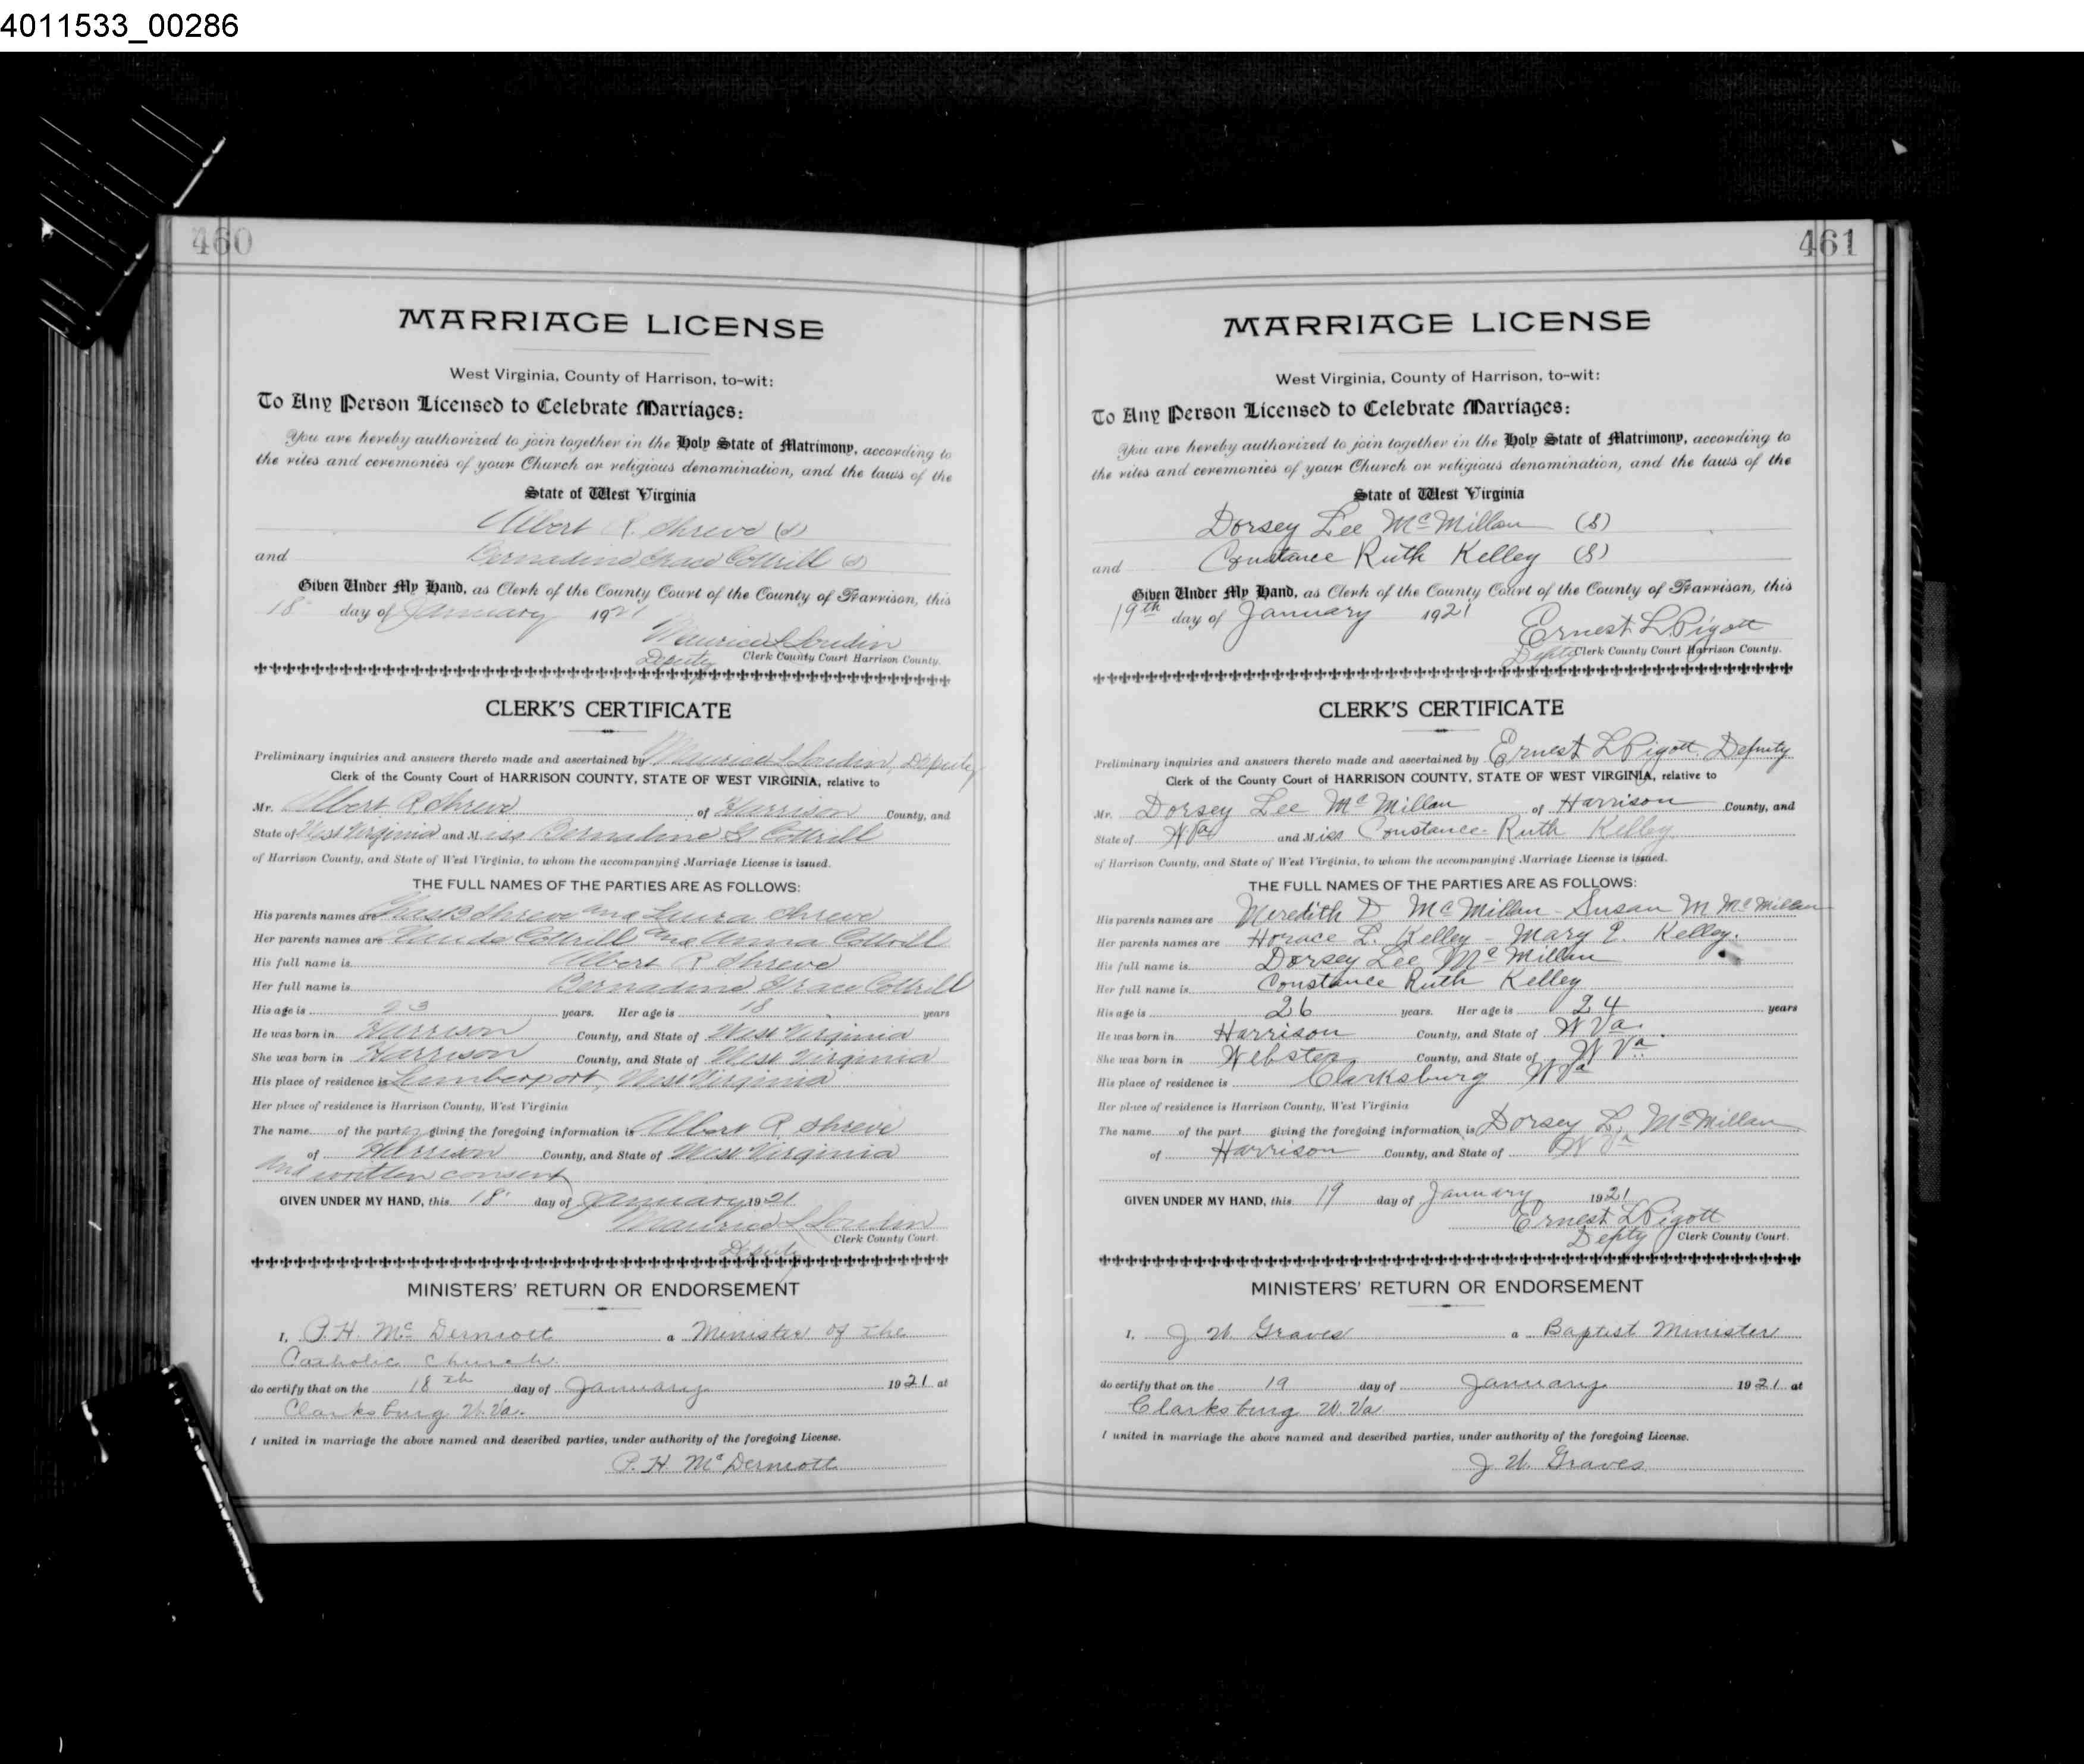 4011533_00286
460
MARRIAGE LICENSE
West Virginia, County of Harrison, to-wit:
To Any Person Licensed to Celebrate Marriages:
You are hereby authorized to join together in the Holy State of Matrimony, according to
the rites and ceremonies of your Church or religious denomination, and the laws of the
State of West Virginia
Albert R. Shreve (S)
and Bernadine Grace Cottrill (S)
Given Under My Hand, as Clerk of the County Court of the County of Harrison, this
18 day of January 1921
Maurice L Loudin
Deputy Clerk County Court Harrison County.
CLERK'S CERTIFICATE
Preliminary inquiries and answers thereto made and ascertained by Maurice L Loudin, Deputy
Clerk of the County Court of HARRISON COUNTY, STATE OF WEST VIRGINIA, relative to
Mr. Albert R Shreve of Harrison County, and
State of West Virginia and Miss Bernadine G Cottrill
of Harrison County, and State of West Virginia, to whom the accompanying Marriage License is issued.
THE FULL NAMES OF THE PARTIES ARE AS FOLLOWS:
His parents names are Shreve and Laura Shreve
Her parents names are Claude Cottrill and Anna Cottrill
His full name is Albert R Shreve
Her full name is Bernadine Grace Cottrill
His age is 23 years. Her age is 18 years
He was born in Harrison County, and State of West Virginia
She was born in Harrison County, and State of West Virginia
His place of residence is Lumberport, West Virginia
Her place of residence is Harrison County, West Virginia
The name of the party giving the foregoing information is Albert R. Shreve
of Harrison County, and State of West Virginia
and written consent
GIVEN UNDER MY HAND, this 18 day of January 1921
Maurice L Loudin
Deputy Clerk County Court.
MINISTERS' RETURN OR ENDORSEMENT
I, P. H. McDermott a Minister of the
Catholic Church
do certify that on the 18th day of January 1921 at
Clarksburg W. Va.
I united in marriage the above named and described parties, under authority of the foregoing License.
P. H. McDermott
461
MARRIAGE LICENSE
West Virginia, County of Harrison, to-wit:
To Any Person Licensed to Celebrate Marriages:
You are hereby authorized to join together in the Holy State of Matrimony, according to
the rites and ceremonies of your Church or religious denomination, and the laws of the
State of West Virginia
Dorsey Lee McMillan (S)
and Constance Ruth Kelley (S)
Given Under My Hand, as Clerk of the County Court of the County of Harrison, this
19th day of January 1921
Ernest L Pigott
Depty Clerk County Court Harrison County.
CLERK'S CERTIFICATE
Preliminary inquiries and answers thereto made and ascertained by Ernest L Pigott, Deputy
Clerk of the County Court of HARRISON COUNTY, STATE OF WEST VIRGINIA, relative to
Mr. Dorsey Lee McMillan of Harrison County, and
State of W Va and Miss Constance Ruth Kelley
of Harrison County, and State of West Virginia, to whom the accompanying Marriage License is issued.
THE FULL NAMES OF THE PARTIES ARE AS FOLLOWS:
His parents names are Meredith D McMillan - Susan M McMillan
Her parents names are Horace L. Kelley - Mary E. Kelley.
His full name is Dorsey Lee McMillan
Her full name is Constance Ruth Kelley
His age is 26 years. Her age is 24 years
He was born in Harrison County, and State of W Va.
She was born in Webster County, and State of W Va.
His place of residence is Clarksburg W Va
Her place of residence is Harrison County, West Virginia
The name of the part giving the foregoing information is Dorsey L. McMillan
of Harrison County, and State of W Va
GIVEN UNDER MY HAND, this 19 day of January 1921
Ernest L Pigott
Depty Clerk County Court.
MINISTERS' RETURN OR ENDORSEMENT
I, J W. Graves a Baptist Minister
do certify that on the 19 day of January 1921 at
Clarksburg W. Va
I united in marriage the above named and described parties, under authority of the foregoing License.
J W. Graves